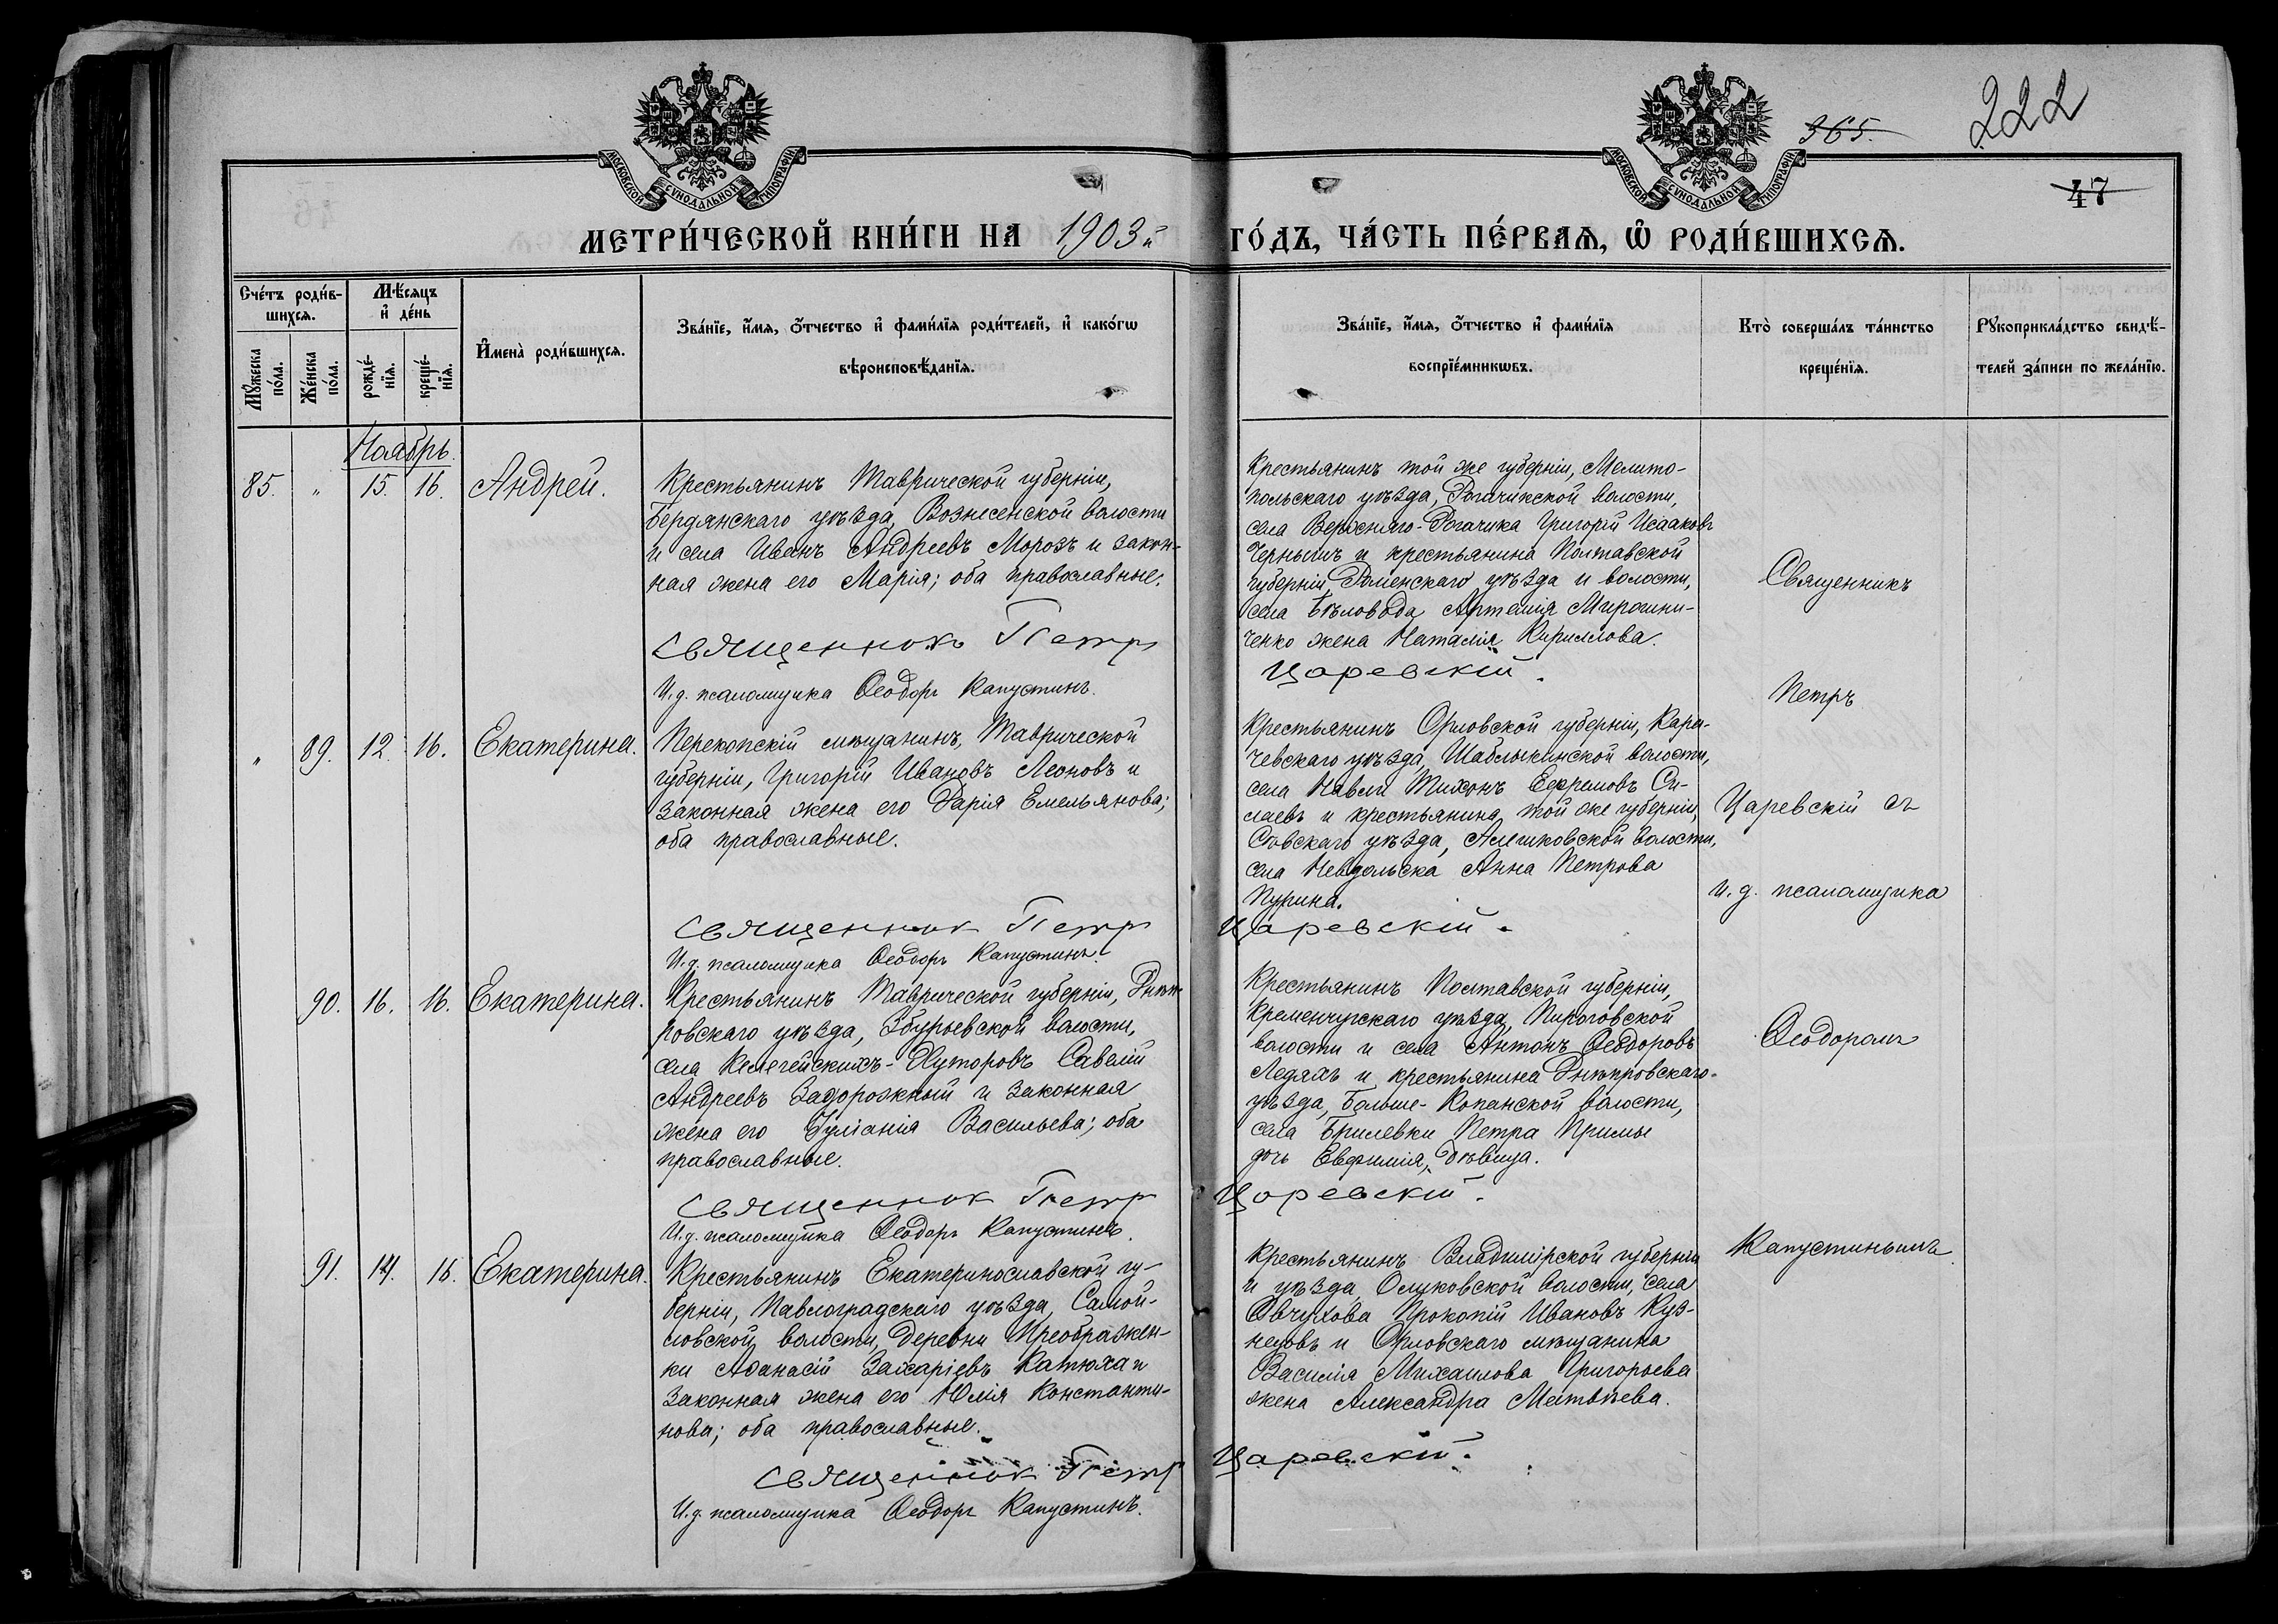 МОСКОВСКОЙ СѴНОДАЛЬНОЙ ТИПОГРАФІИ
МОСКОВСКОЙ СѴНОДАЛЬНОЙ ТИПОГРАФІИ
365.
222
47
МЕТРИ́ЧЕСКОЙ КНИ́ГИ НА 1903й ГО́ДЪ, ЧА́СТЬ ПЕ́РВАѦ, Ѡ РОДИ́ВШИХСѦ.
Сче́тъ роди́в-
шихсѧ.
Мꙋжеска по́ла.
Же́нска по́ла.
Мѣ́сѧцъ
и҆ де́нь
рожде́-
нїѧ.
креще́-
нїѧ.
И҆мена̀ роди́вшихсѧ.
Зва́нїе, и҆́мѧ, ѻ҆́тчество и҆ фами́лїѧ роди́телей, и҆ како́гѡ
вѣроисповѣ́данїѧ.
Зва́нїе, и҆́мѧ, ѻ҆́тчество и҆ фами́лїѧ
воспрїе́мникѡвъ.
Кто̀ соверша́лъ та́инство
креще́нїѧ.
Рꙋкоприкла́дство свидѣ́-
телей за́писи по жела́нїю.
Ноябрь.
85. " 15. 16. Андрей.
Крестьянинъ Таврической губерніи,
Бердянскаго уѣзда, Вознесенской волости
и села Иванъ Андреевъ Морозъ и закон-
ная жена его Марія; оба православные.
Священникъ Петръ
И.д. псаломщика Ѳеодоръ Капустинъ.
Крестьянинъ той же губерніи, Мелито-
польскаго уѣзда, Рогачикской волости,
села Верхняго-Рогачика Григорій Исааковъ
Чернышъ и крестьянина Полтавской
губерніи, Роменскаго уѣзда и волости,
села Бѣловода Артемія Мирошни-
ченко жена Наталія Кириллова.
Царевскій.
" 89. 12. 16. Екатерина.
Перекопскій мѣщанинъ, Таврической
губерніи, Григорій Ивановъ Леоновъ и
законная жена его Дарія Емельянова;
оба православные.
Священник Петр
И.д. псаломщика Ѳеодоръ Капустинъ.
Крестьянинъ Орловской губерніи, Кара-
чевскаго уѣзда, Шаблыкинской волости,
села Навли Тихонъ Ефремовъ Си-
лаевъ и крестьянина той же губерніи,
Сѣвскаго уѣзда, Алешковской волости,
села Невдольска Анна Петрова
Пурина.
Царевскій.
90. 16. 16. Екатерина.
Крестьянинъ Таврической губерніи, Днѣп-
ровскаго уѣзда, Збурьевской волости,
села Келегейскихъ-Хуторовъ Савелій
Андреевъ Задорожный и законная
жена его Іуліанія Васильева; оба
православные.
Священник Петр
И.д. псаломщика Ѳеодоръ Капустинъ.
Крестьянинъ Полтавской губерніи,
Кременчугскаго уѣзда, Пироговской
волости и села Антонъ Ѳеодоровъ
Ледяхъ и крестьянина Днѣпровскаго
уѣзда, Больше-Копанской волости,
села Брилевки Петра Примы
дочь Евфимія, дѣвица.
Царевскій.
91. 14. 16. Екатерина.
Крестьянинъ Екатеринославской гу-
берніи, Павлоградскаго уѣзда, Самой-
ловской волости, деревни Преображен-
ки Аѳанасій Захаріевъ Катюха и
законная жена его Юлія Константи-
нова; оба православные.
Священник Петр
И.д. псаломщика Ѳеодоръ Капустинъ.
Крестьянинъ Владимірской губерніи
и уѣзда, Оликовской волости, села
Овчухова Прокопій Ивановъ Куз-
нецовъ и Орловскаго мѣщанина
Василія Михаилова Григорьева
жена Александра Матвѣева.
Царевскій.
Священникъ
Петръ
Царевскій съ
и.д. псаломщика
Ѳеодоромъ
Капустинымъ